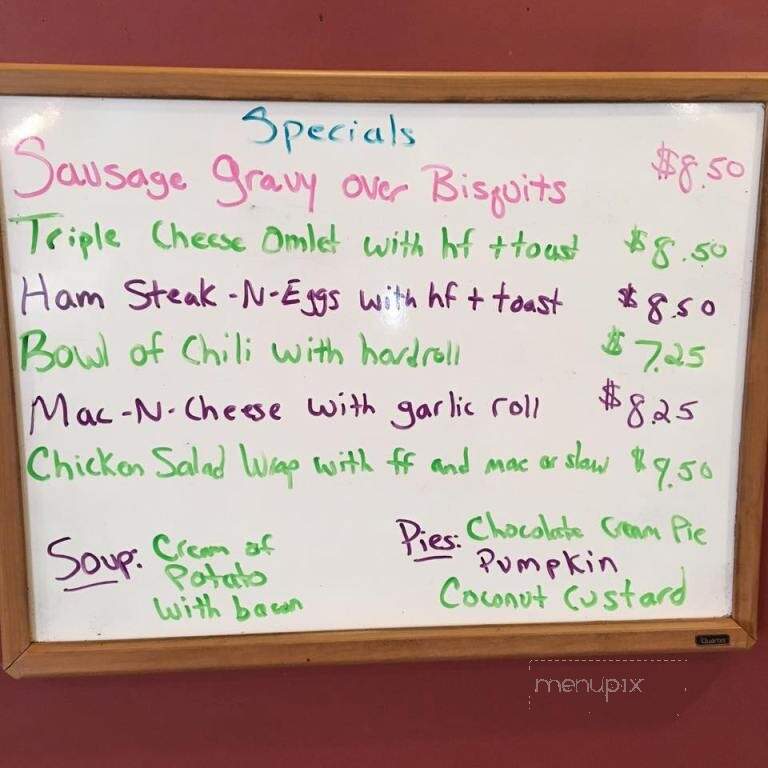 Specials
Sausage gravy over Bisquits $8.50
Triple Cheese Omlet with hf + toast $8.50
Ham Steak-N-Eggs with hf + toast $8.50
Bowl of Chili with hardroll $7.25
Mac-N-Cheese with garlic roll $8.25
Chicken Salad Wrap with ff and mac or slaw $9.50
Soup: Cream of
Potato
with bacon
Pies: Chocolate Cream Pie
Pumpkin
Coconut Custard
Quartet
menupix